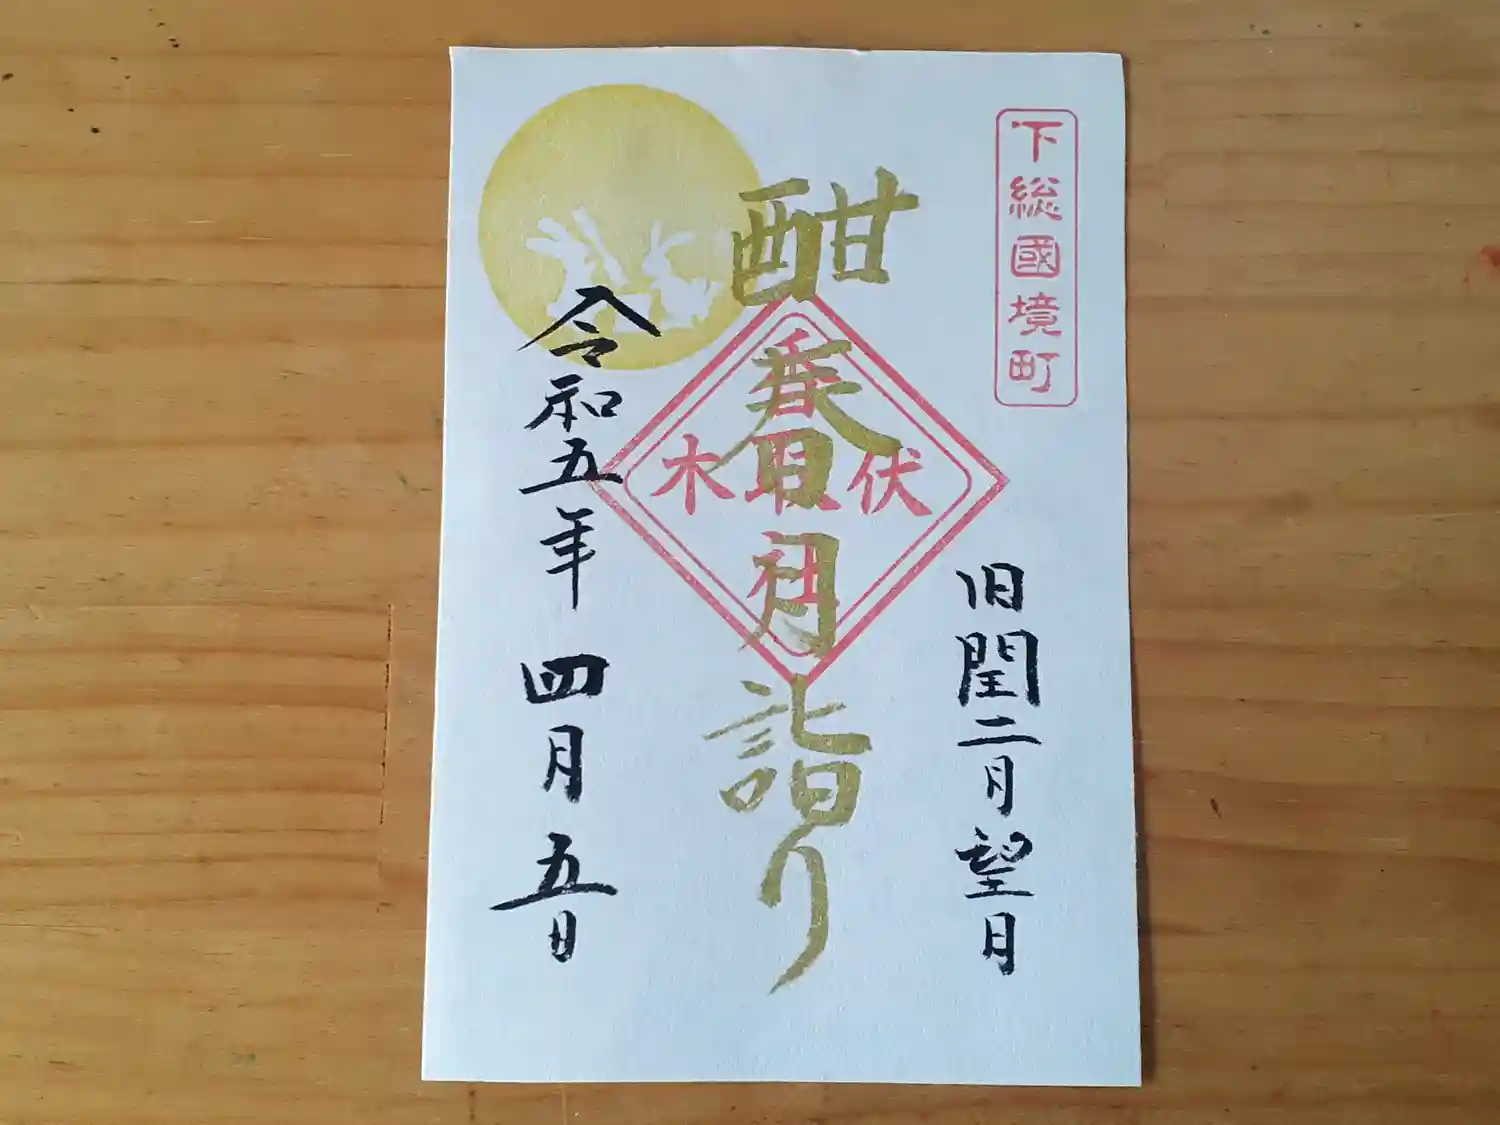 下総國境町
旧閏二月望日
酣春月詣り
伏木
香取社
令和五年 四月五日